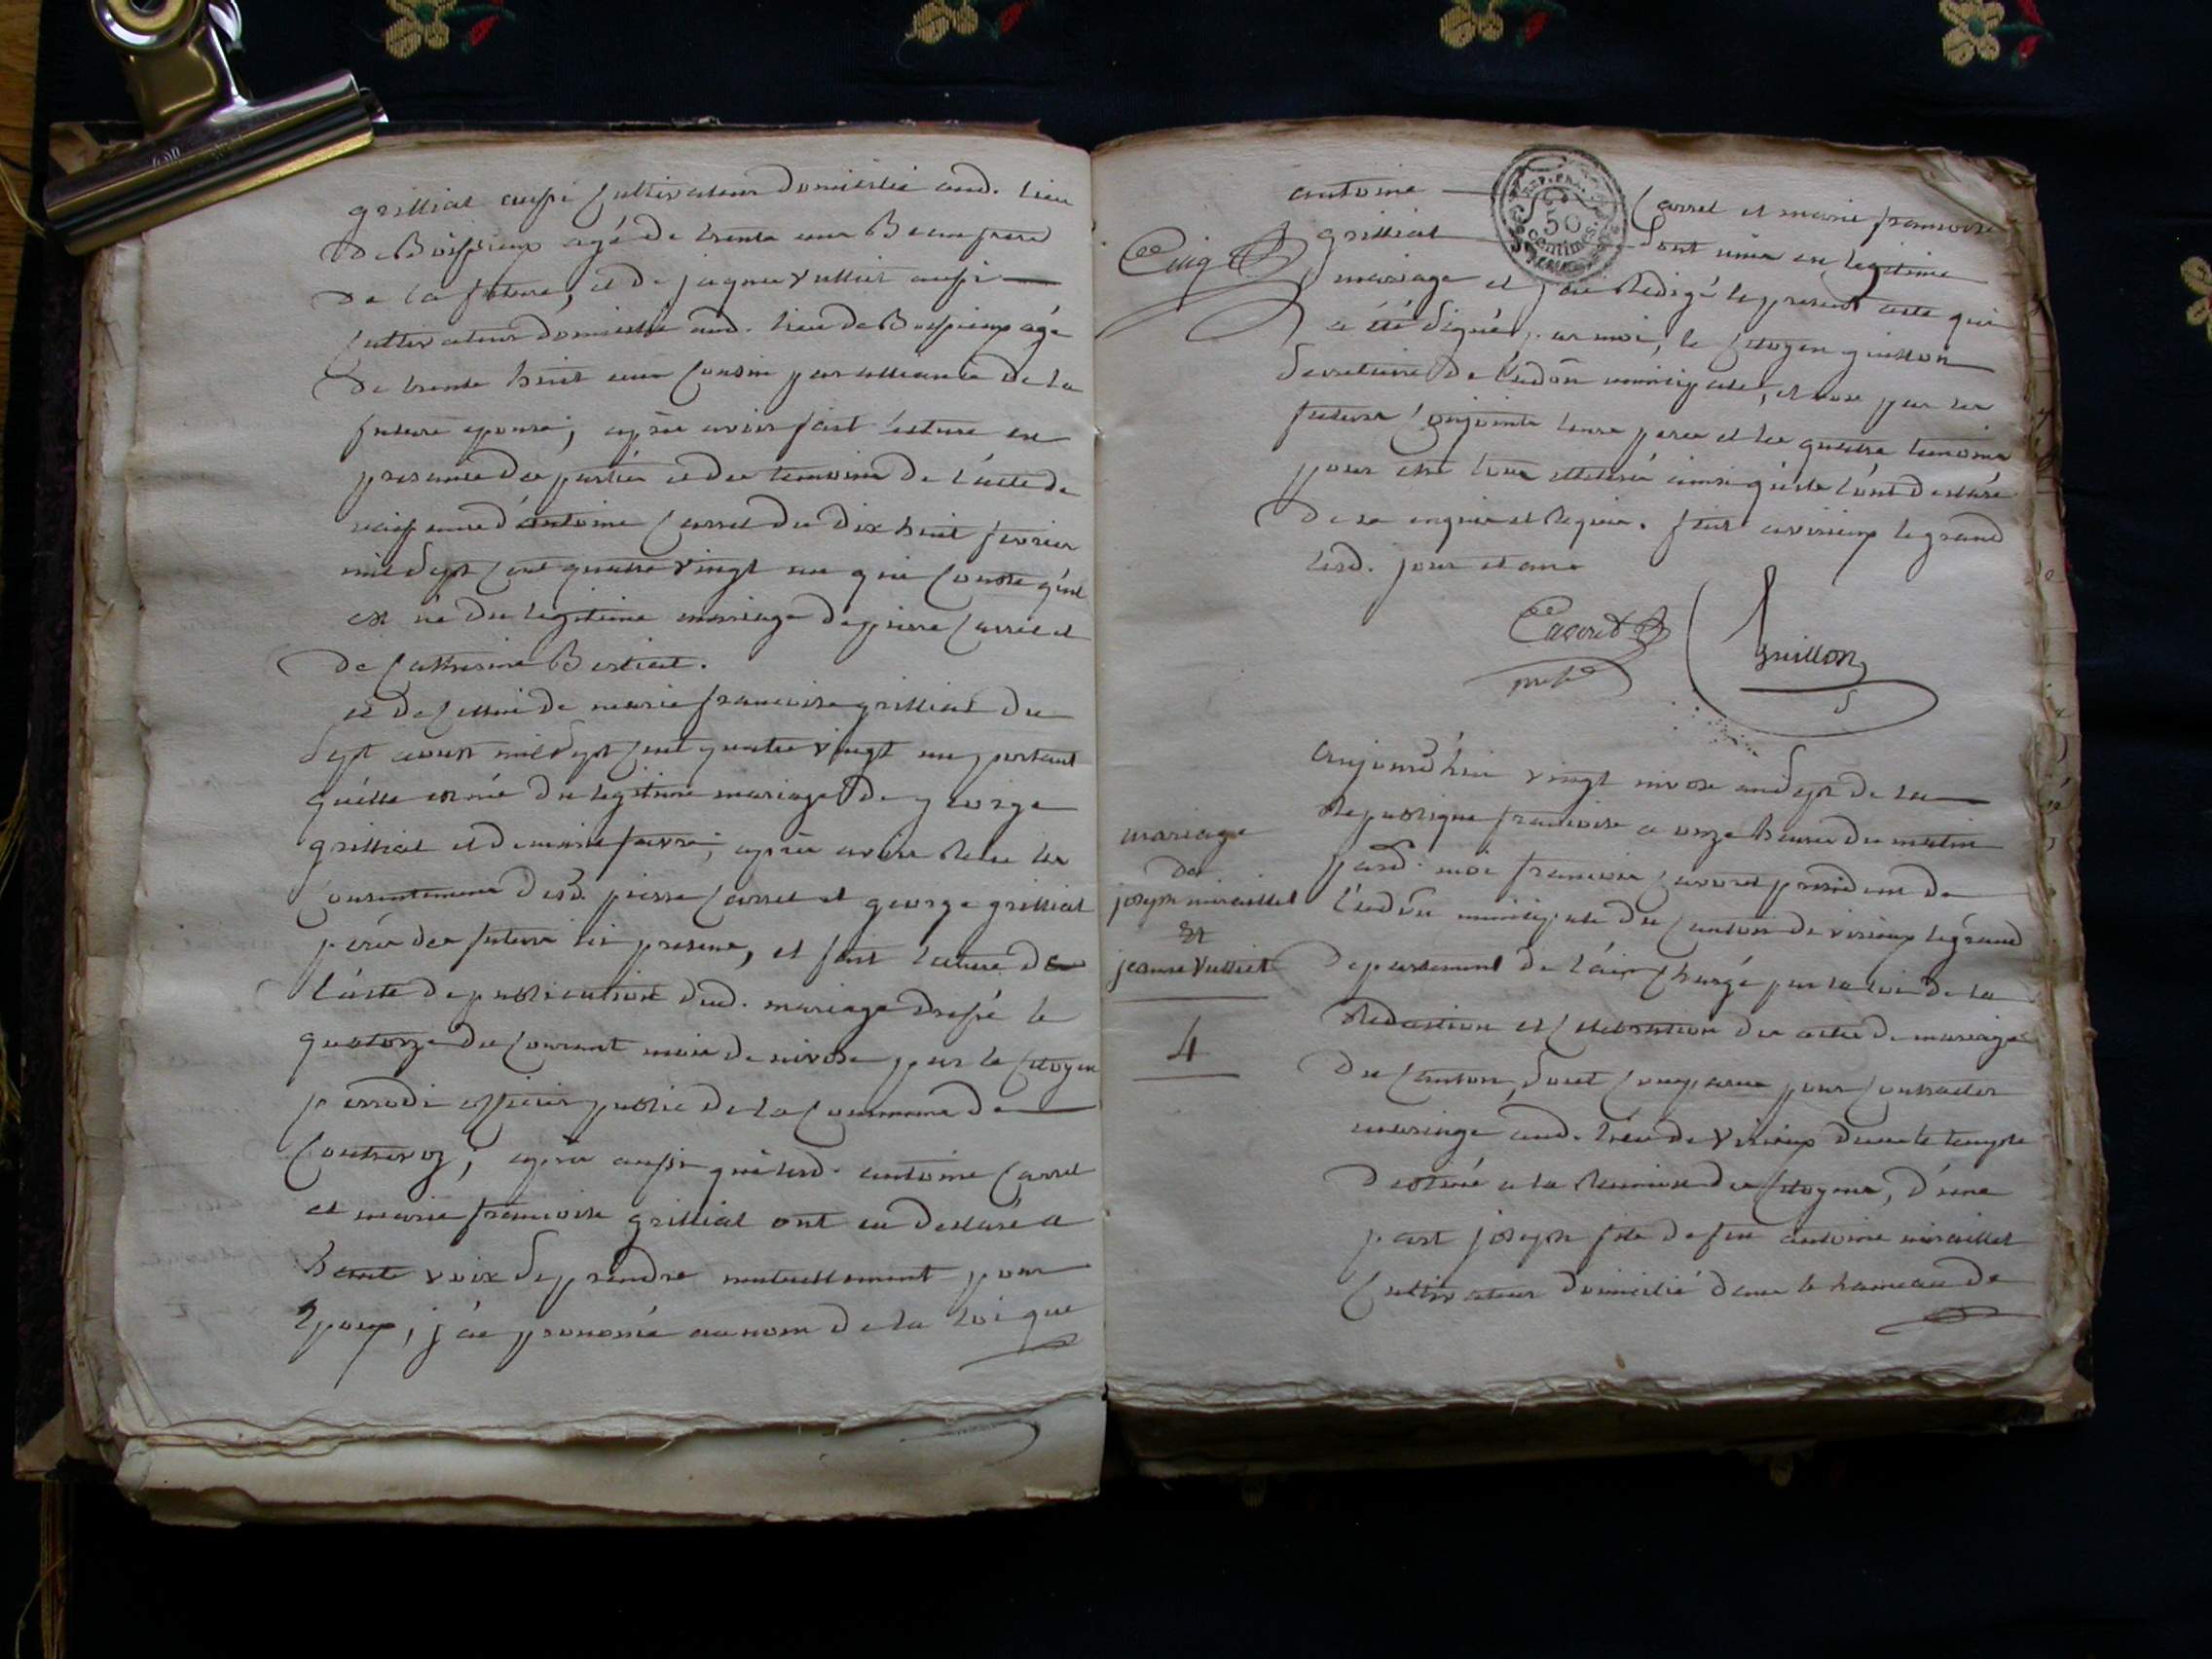 grilliat aussi Cultivateur domicilié aud. lieu
de Boissieux agé de trente ans Beaufrere
de la future, et de jaque vulliet aussi
Cultivateur domicilié aud. lieu de Boissieux agé
de trente huit ans Cousin par alliance de la
future epouse, après avoir fait lecture en
presence des parties et des temoins de l'acte de
naissance d'antoine Carrel du dix huit fevrier
mil Sept Cent quatre vingt un qui Conste qu'il
est né du legitime mariage de pierre Carrel et
de Catherine Bertiet.
et de Celui de marie francoise grilliat du
Sept aoust mil Sept Cent quatre vingt un portant
qu'elle est née du legitime mariage de george
grilliat et de marie favre, après avoir Recu les
Consentemens desd. pierre Carrel et george grilliat
peres des futurs ici presens, et fait lecture de
l'acte de publication dud. mariage dressé le
quatorze du Courant mois de nivose par le Citoyen
officier public de la Commune de
Contrevoz, après aussi que lesd. antoine Carrel
et marie francoise grilliat ont eu declaré a
haute voix Se prendre mutuellement pour
Epoux, j'ai prononcé au nom de la loi que
antoine Carrel et marie francoise
grilliat Sont unis en legitime
mariage et j'ai Redigé le present acte qui
a été Signé par moi, le Citoyen guillon
Secretaire de l'adôn municipale, et non par les
futurs Conjoints leurs peres et les quatre temoins
pour etre tous illiterés ainsi qu'ils l'ont declaré
de ce enquis et Requis. fait a virieux le grand
lesd. jour et an.
REP. FRA.
50
centimes
Cavaret
presdt
Guillon
mariage
de
joseph miraillet
et
jeanne Vulliet
4
aujourd'hui vingt nivose an Sept de la
Republique francoise a onze heures du matin
pard. moi francois Cavaret president de
l'adôn municipale du Canton de virieux le grand
departement de l'ain Chargé par la loi de la
Redaction et Celebration des actes de mariage
du Canton, Sont Comparus pour Contracter
mariage aud. lieu de Virieux dans le temple
destiné a la Reunion des Citoyens, d'une
part joseph fils de feu antoine miraillet
Cultivateur domicilié dans le hameau de